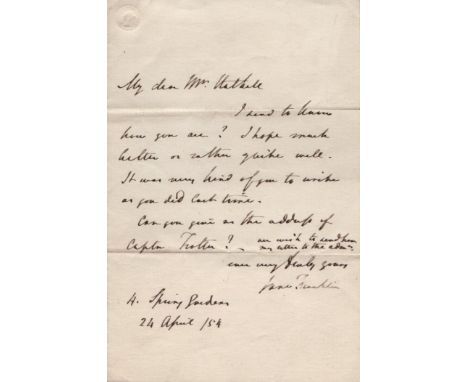 My dear Mrs.
I send to know
how you are? I hope much
better or rather quite well.
It was very kind of you to write
as you did last time.
Can you give us the address of
Captn Trotter? - we wish to send him
my letter to the Admy.
ever very truly yours
Jane Franklin
4. Spring Gardens
24 April /54